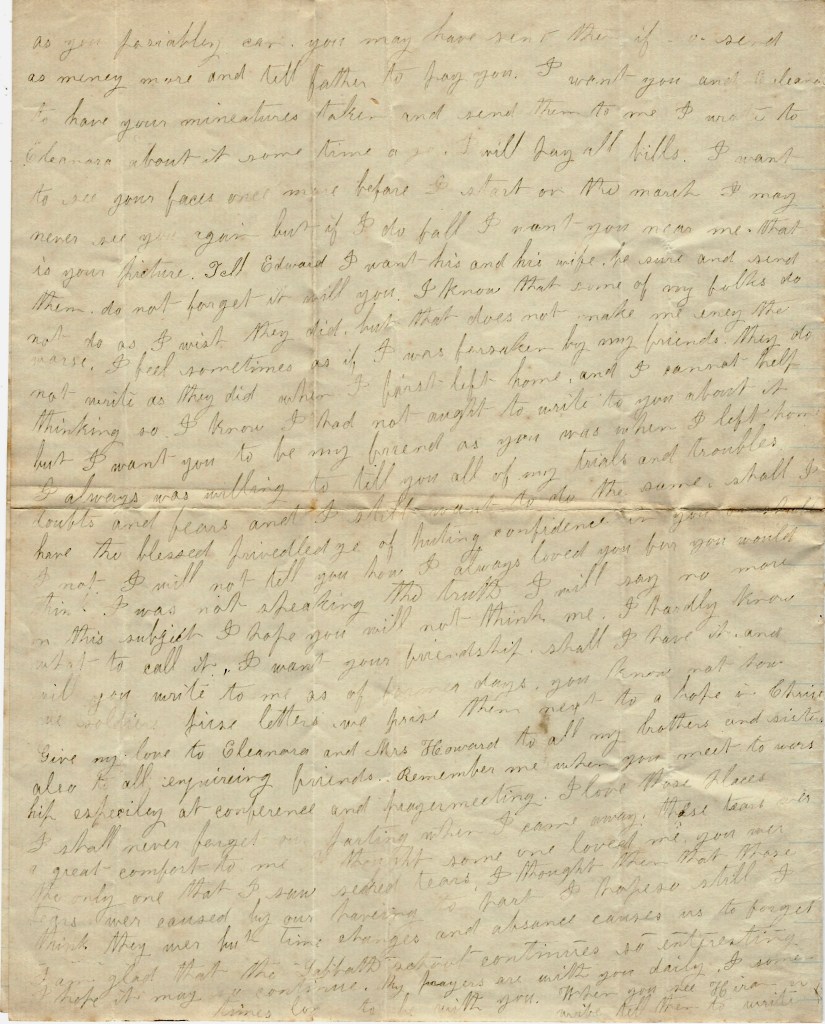 as you possiabley can. you may have send them if so send
as meney more and tell Father to pay you. I want you and Eleanora
to have your mineatures taken and send them to me I wrote to
Eleanora about it some time ago. I will pay all bills. I want
to see your faces once more before I start on the march I may
never see you again but if I do fall I want you near me. that
is your picture. Tell Edward I want his and his wife. be sure and send
them. do not forget it will you. I know that some of my folks do
not do as I wish they did. but that does not make me eney the
worse. I feel sometimes as if I was forsaken by my friends. they do
not write as they did when I first left home, and I cannot help
thinking so I know I had not aught to write to you about it
but I want you to be my friend as you was when I left home
I always was willing to tell you all of my trials and troubles
doubts and fears and I still want to do the same. shall I
have the blessed privedledge of puting confidence in you or shall
I not I will not tell you how I always loved you for you would
think I was not speaking the truth I will say no more
on this subject I hope you will not think me. I hardly know
what to call it, I want your friendship. shall I have it. and
will you write to me as of former days. you know not how
we soldiers prise letters we prise them next to a hope in Christ
Give my love to Eleanora and Mrs Howard to all my brothers and sisters
also to all enquireing friends. Remember me when you meet to wors
hip especiley at conference and prayermeeting. I love those places
I shall never forget our parting when I came away. those tears wer
a great comfort to me I thought some one loved me, you wer
the only one that I saw sheed tears, I thought then that those
tears wer caused by our haveing to part I hope so still I
think they wer but time changes and absance causes us to forget
I am glad that the Sabbath school continues so entresting
I hope it may so continue. My prayers are with you daily I some
times long to be with you. When you see Hiram or
write tell them to write